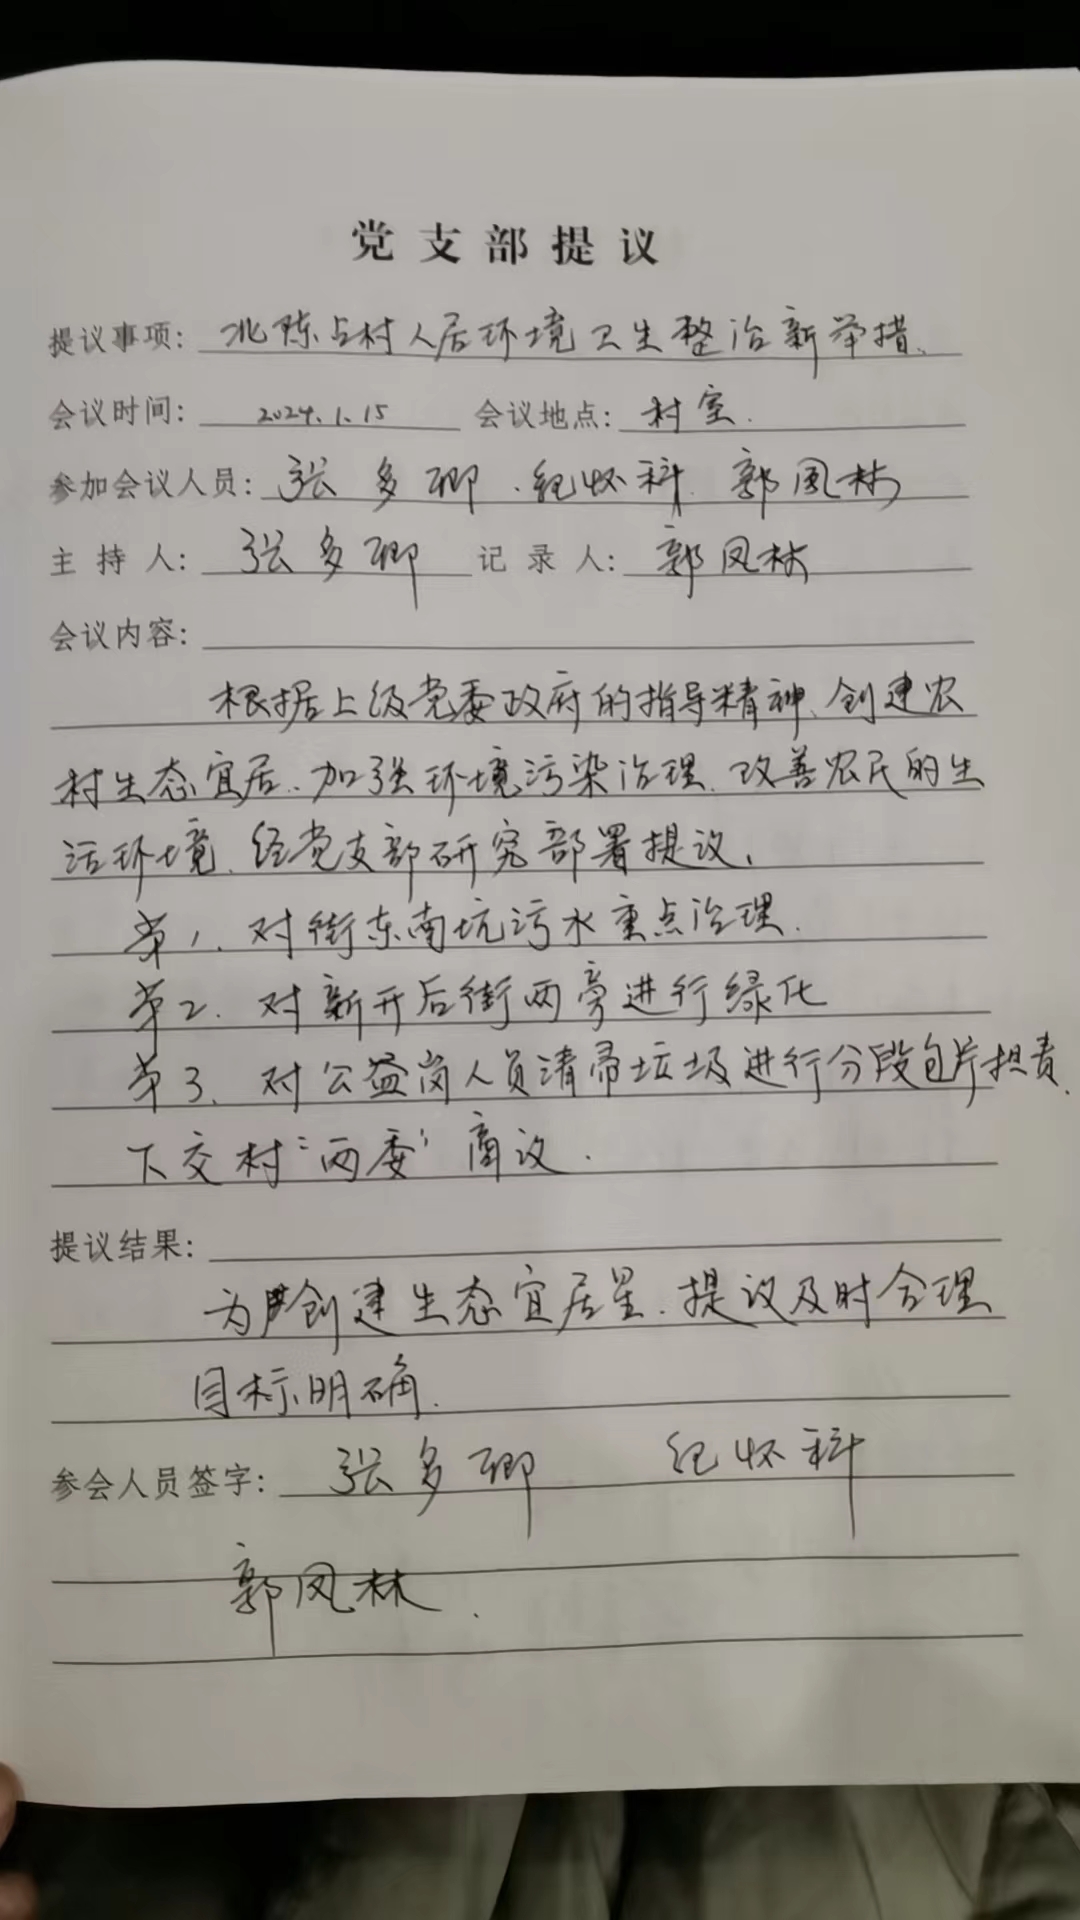 党支部提议
提议事项: 北陈占村人居环境卫生整治新举措.
会议时间: 2024.1.15 会议地点: 村室.
参加会议人员: 张多卿.纪怀科.郭凤林
主持人: 张多卿 记录人: 郭凤林
会议内容:
根据上级党委政府的指导精神、创建农
村生态宜居.加强环境污染治理.改善农民的生
活环境.经党支部研究部署提议.
第1.对街东南坑污水重点治理.
第2.对新开后街两旁进行绿化
第3.对公益岗人员清帚垃圾进行分段包片担责.
下交村"两委"商议.
提议结果:
为创建生态宜居星.提议及时合理
目标明确.
参会人员签字: 张多卿 纪怀科
郭凤林.